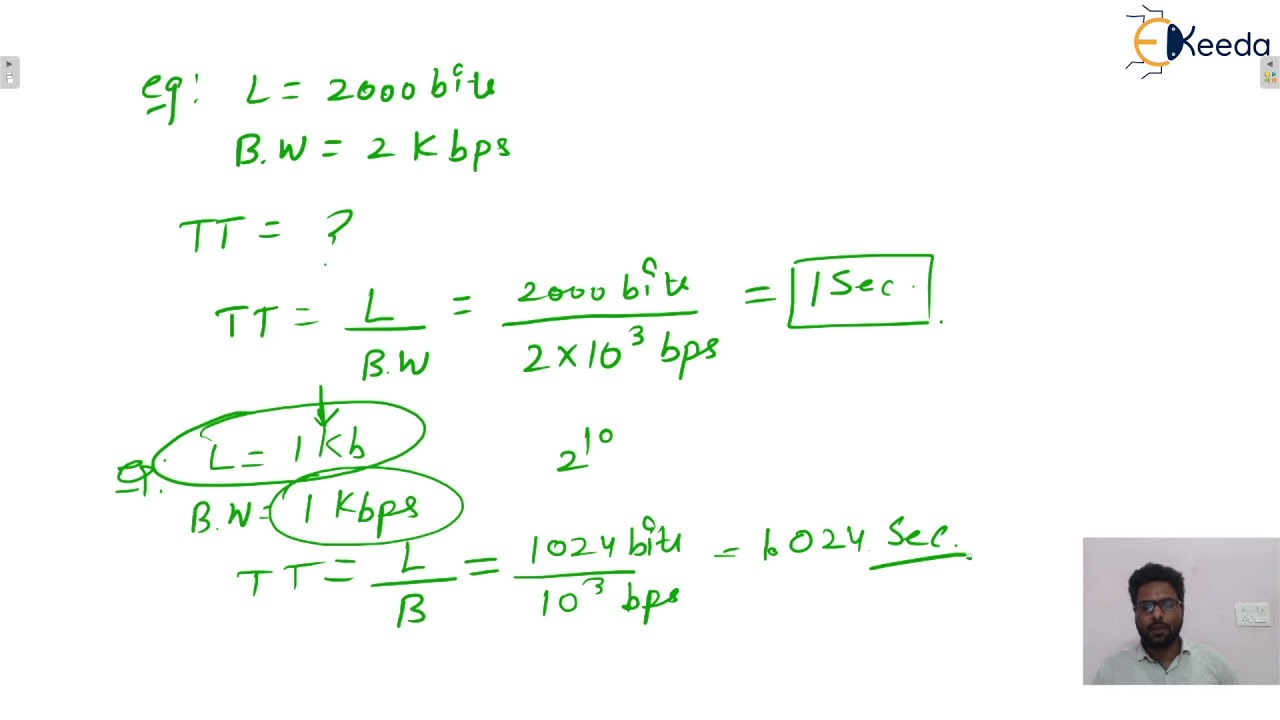 EKeeda
eg: L = 2000 bits
B.W = 2 Kbps
TT = ?
TT = L / B.W = 2000 bits / 2 × 10³ bps = 1 Sec.
eg. L = 1 Kb
2¹⁰
B.W = 1 Kbps
TT = L / B = 1024 bits / 10³ bps = 1.024 Sec.